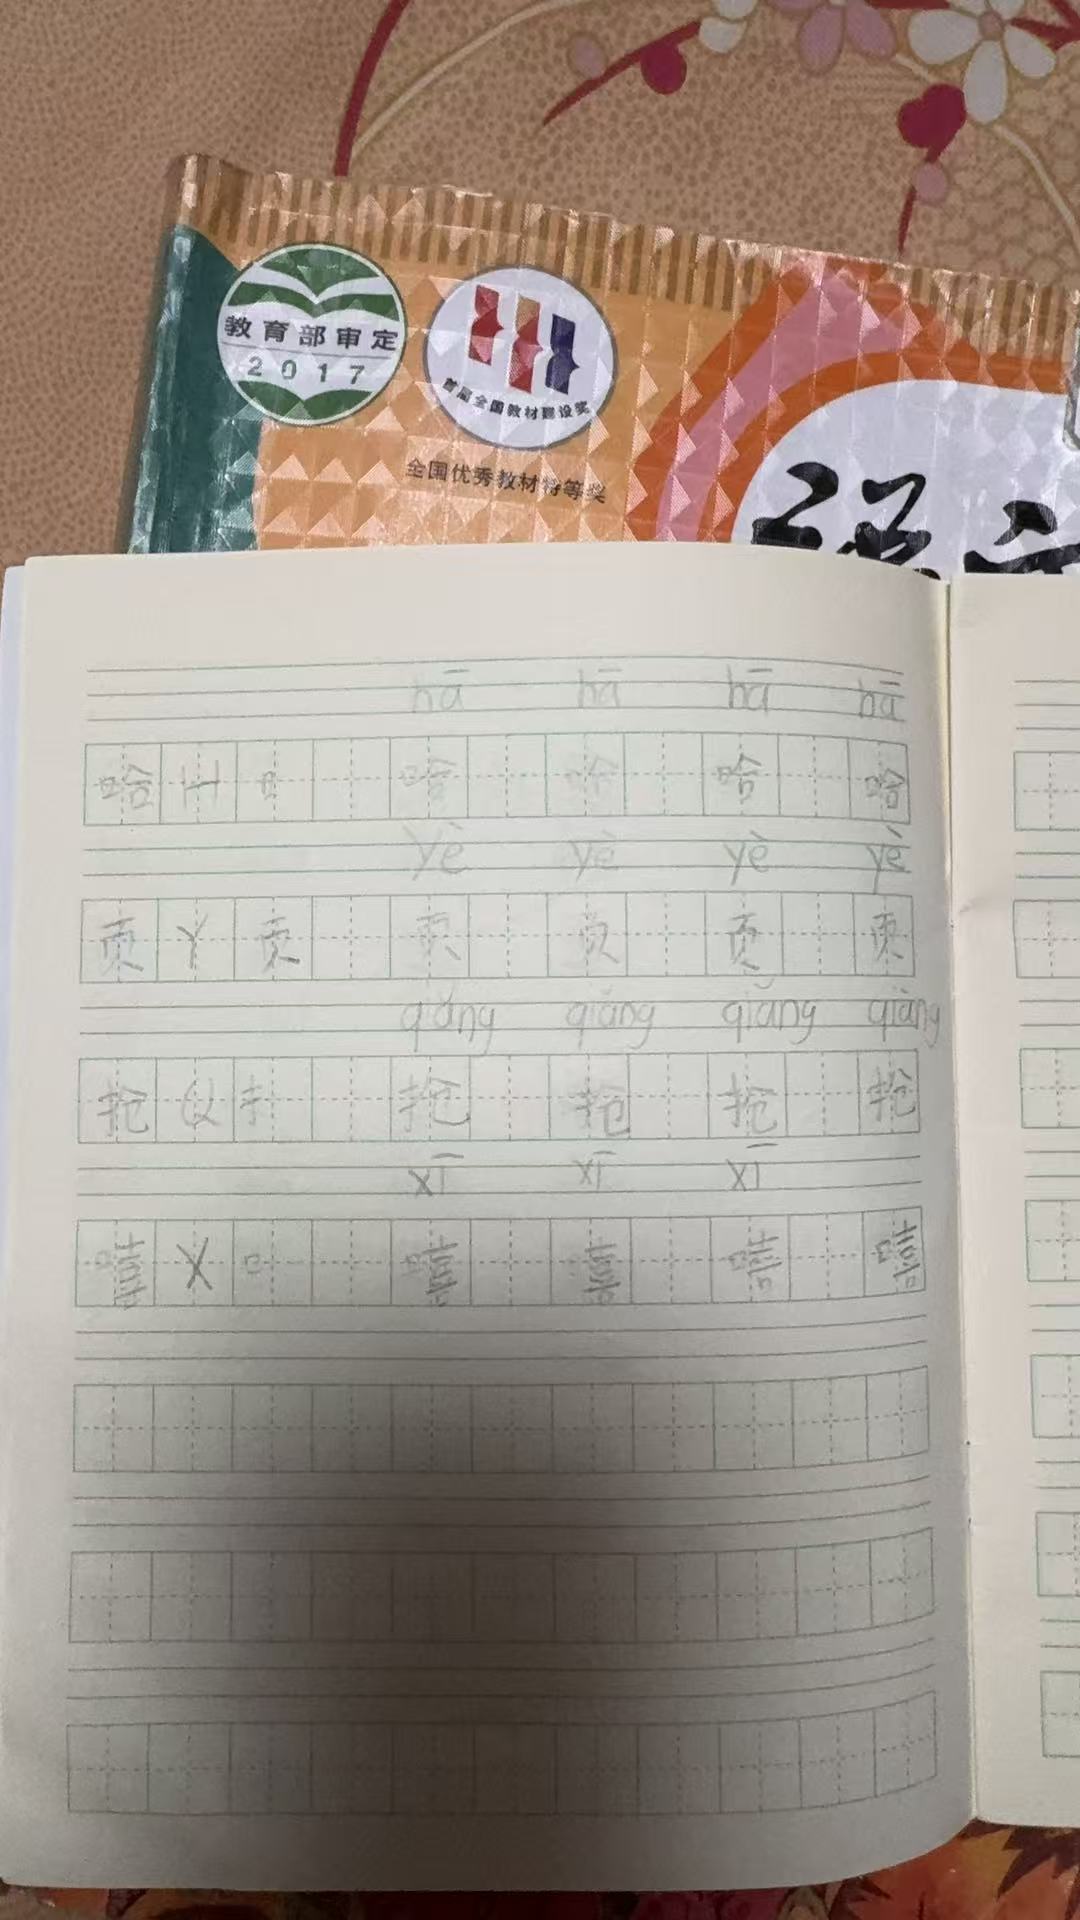 教育部审定
2017
首届全国教材建设奖
全国优秀教材特等奖
语文
hā hā hā hā
哈 H 口 哈 哈 哈 哈
yè yè yè yè
页 Y 页 页 页 页 页
qiǎng qiǎng qiǎng qiǎng
抢 Q 扌 抢 抢 抢 抢
xī xī xī
嘻 X 口 嘻 嘻 嘻 嘻